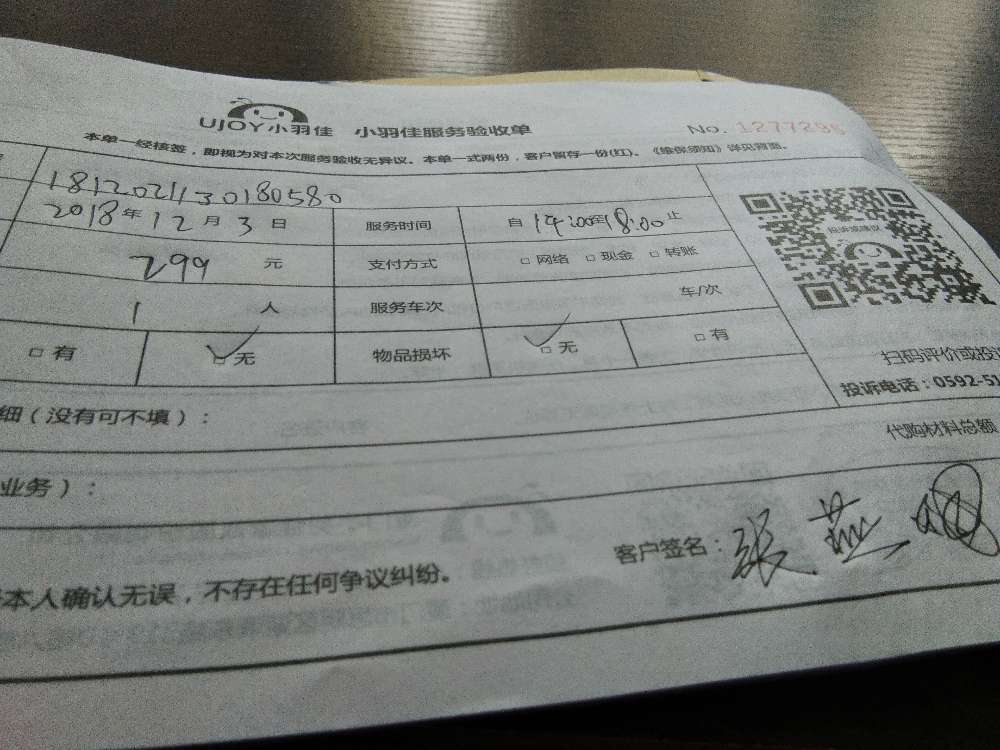 UJOY小羽佳 小羽佳服务验收单 No. 1277295
本单一经核签，即视为对本次服务验收无异议。本单一式两份，客户留存一份(红)。《维保须知》详见背面。
1812021130180580
2018年12月3日 服务时间 自14:00至18:00止
299元 支付方式 □网络 □现金 □转账
投诉或建议
1人 服务车次 车/次
□有 □无 物品损坏 □无 □有
扫码评价或投
投诉电话：0592-51
细（没有可不填）：
代购材料总额
业务）：
客户签名：张燕
本人确认无误，不存在任何争议纠纷。